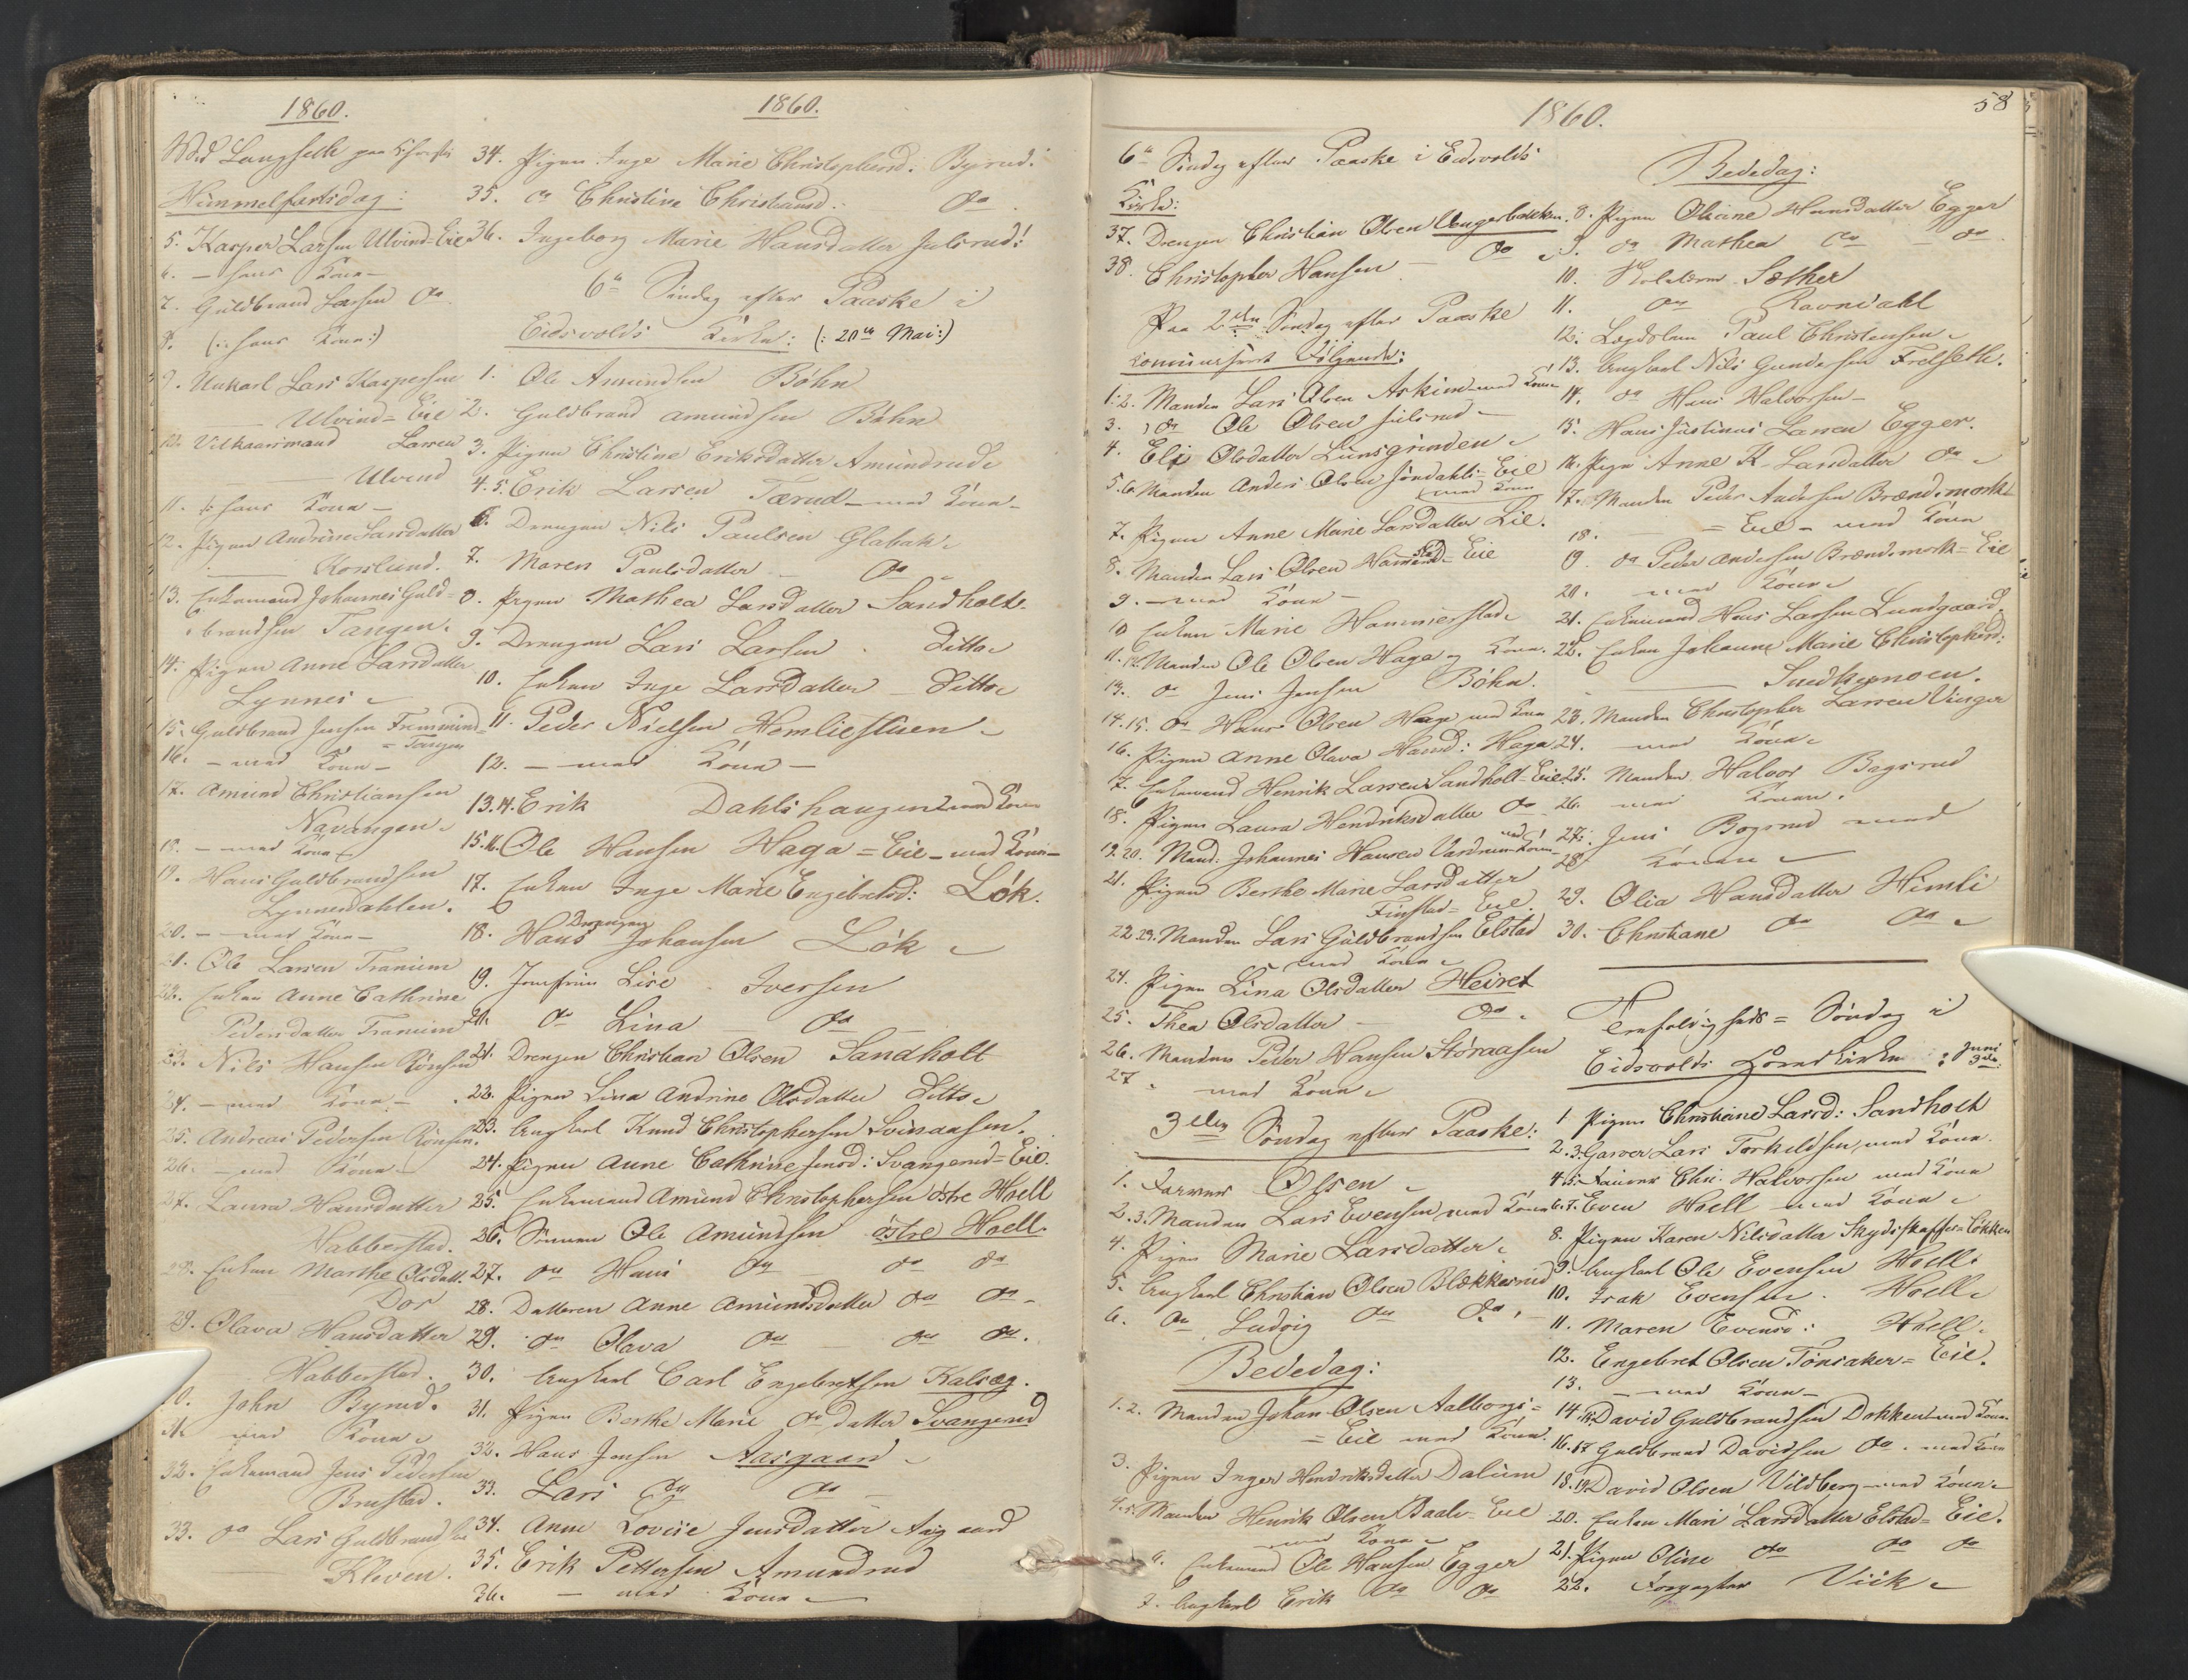 1860.
Ved Langsett paa Christi
Himmelfartsdag:
5. Kasper Larsen Ulvind=Eie
6. — hans Kone —
7. Guldbrand Larsen do
8. (: hans Kone:)
9. Unkarl Lars Kaspersen
Ulvind=Eie
10. Vilkaarsmand Larsen
Ulvind
11. /: hans Kone —
12. Pigen Andrine Larsdatter
Korslund.
13. Enkemand Johannes Guld=
brandsen Tangen.
14. Pigen Anne Larsdatter
Lynnes
15. Guldbrand Jensen
= Tangen
16. — med Kone —
17. Amund Christiansen
Navangen.
18. — med Kone
19. Hans Guldbrandsen
Lynnesdahlen.
20. — med Kone —
21. Ole Larsen Tranum
22. Enken Anne Cathrine
Pedersdatter Tranum
23. Nils Hansen Rönsen
24. — med Kone —
25. Andreas Pedersen Rönsen.
26. — med Kone —
27. Laura Hansdatter
Habberstad.
28. Enken Marthe Olsdatt.
Dor
29. Olava Hansdatter
Habberstad.
30. John Byrud.
31. med Kone
32. Enkemand Jens Pedersen
Brustad.
33. do Lars Guldbrandsen
Kleven.
1860.
34. Pigen Inge Marie Christophersd. Byrud.
35. do Christine Christiansd. do
36. Ingeborg Marie Hansdatter Julsrud.
6te Söndag efter Paaske i
Eidsvolds Kirke: (: 20de Mai:)
1. Ole Amundsen Böhn
2. Guldbrand Amundsen Böhn
3. Pigen Christine Eriksdatter Amundrud
4. 5. Erik Larsen Tærud — med Kone —
6. Drengen Nils Paulsen Glabak
7. Maren Paulsdatter — do
8. Pigen Mathea Larsdatter Sandholt
9. Drengen Lars Larsen . Ditto
10. Enken Inge Larsdatter — Ditto
11. Peder Nielsen Homliestuen
12. — med Kone —
13. 14. Erik Dahlshaugen med Kone
15. 16. Ole Hansen Haga = Eie — med Kone —
17. Enken Inge Marie Engebretsd: Lök.
18. Drengen Hans Johansen Lök
19. Jomfruen Lise Iversen
20. do Lina — do —
21. Drengen Christian Olsen Sandholt
22. Pigen Lina Andrine Olsdatter Ditto
23. Ungkarl Knud Christophersen Svinaasen.
24. Pigen Anne Cathrine Jensd: Svangerud=Eie.
25. Enkemand Amund Christophersen östre Hoell
26. Sönnen Ole Amundsen östre Hoell.
27. do Hans do do do
28. Datteren Anne Amundsdatter do do —
29. do Olava do — do do.
30. Ungkarl Carl Engebretsen Kalsæg.
31. Pigen Berthe Marie do datter Svangerud
32. Hans Jensen Aasgaard
33. Lars do do —
34. Anne Lovise Jensdatter Aasgaard
35. Erik Pettersen Amundrud
36. — med Kone
1860.
58
6te Söndag efter Paaske i Eidsvolds
Kirke:
37. Drengen Christian Olsen Vengerbakken.
38. Christopher Hansen — do
Paa 2den Söndag efter Paaske
communiserede Følgende:
1. 2. Manden Lars Olsen Askim med Kone
3. do Ole Olsen Julsrud —
4. Eli Olsdatter Lunsgrinden
5. 6. Manden Anders Olsen Jöndahls=Eie
med Kone
7. Pigen Anne Marie Larsdatter Lie.
8. Manden Lars Olsen Hammerstad=Eie
9. — med Kone —
10 Enken Marie Hammerstad
11. 12. Manden Ole Olsen Haga og Kone.
13. do Jens Jensen Böhn.
14. 15. do Hans Olsen Haga med Kone
16. Pigen Anne Olava Hansd: Haga
17. Enkemand Henrik Larsen Sandholt=Eie
18. Pigen Laura Hendriksdatter do
19. 20. Mand. Johannes Hansen med Kone
21. Pigen Berthe Marie Larsdatter
Finstad=Eie.
22. 23. Manden Lars Guldbrandsen Elstad
med Kone
24. Pigen Lina Olsdatter Heiret
25. Thea Olsdatter — do.
26. Manden Peder Hansen Storaasen
27 " med Kone
3die Söndag efter Paaske:
1. Farver Olsen
2. 3. Manden Lars Evensen med Kone
4. Pigen Marie Larsdatter
5. Ungkarl Christian Olsen Blækkerud
6. do Ludvig do do.
Bededag:
1. 2. Manden Johan Olsen Aalborgs=
= Eie med Kone.
3. Pigen Inger Hendriksdatter Dalum
4. 5. Manden Henrik Olsen Daale=Eie
med Kone
6. Enkemand Ole Hansen Egger
7. Ungkarl Erik do do
Bededag:
8. Pigen Oliane Hansdatter Egger
9. do Mathea do — do
10. Sæther
11. do Ravndahl
12. Lægdslem Paul Christensen
13. Ungkarl Nils Gundersen Frelseth.
14. do Hans Halvorsen —
15. Hans Justinus Larsen Egger.
16. Pigen Anne K. Larsdatter do
17. Manden Peder Andersen Brændsmork
18. = Eie — med Kone
19. do Peder Andersen Brændsmork=Eie
20. med Kone
21. Enkemand Hans Larsen Lundgaard.
22. Enken Johanne Marie Christophersd:
23. Manden Christopher Larsen Vinger
24. med Kone
25. Manden Halvor Bagsrud
26. med Konen.
27. Jens Bogsrud med
28. Konen
29. Olia Hansdatter Himli
30. Christiane do do
Trefoldigheds=Söndag i
Eidsvolds Hovedkirke : Juni 3die:
1 Pigen Christiane Larsd: Sandholt
2. 3. Garver Lars Torkildsen med Kone.
4. 5. Chr. Halvorsen med Kone
6. 7. Even Hoell med Kone
8. Pigen Karen Nilsdatter Skydsskaffer=Lökken
9. Ungkarl Ole Evensen Hoell.
10. Isak Evensen . Hoell
11. Maren Evensd: Hoell.
12. Engebret Olsen Tönsaker=Eie.
13. — med Kone —
14. 15. David Guldbrandsen Dokken med Kone.
16. 17 Guldbrand Davidsen do. med Kone
18. 19. David Olsen Vildberg — med Kone
20. Enken Mari Larsdatter Elstad=Eie.
21. Pigen Oline do do do
22. Forpagter Viik